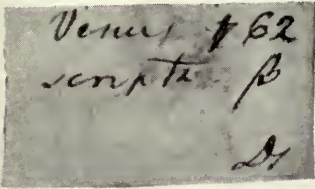 Venus 62
scripta β